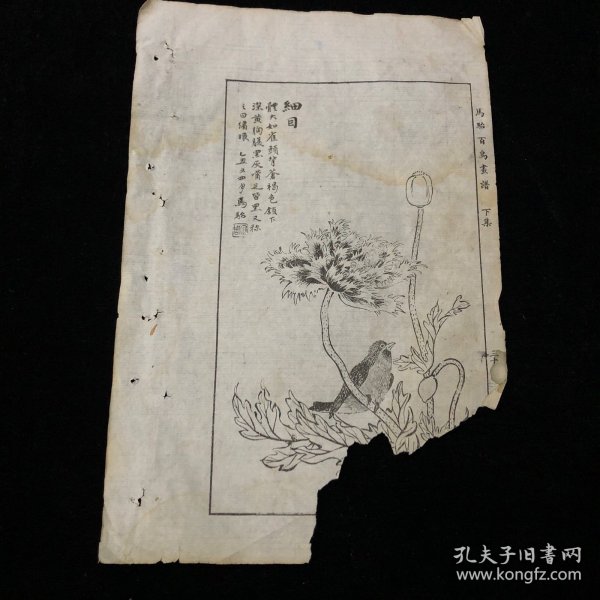 細目
體大如雀頭背蒼褐色頷下
深黃胸腹黑灰嘴足皆黑又称
之曰繡眼 乙丑又四月 馬駘
馬駘百鳥畫譜 下集
孔夫子旧书网
www.kongfz.com